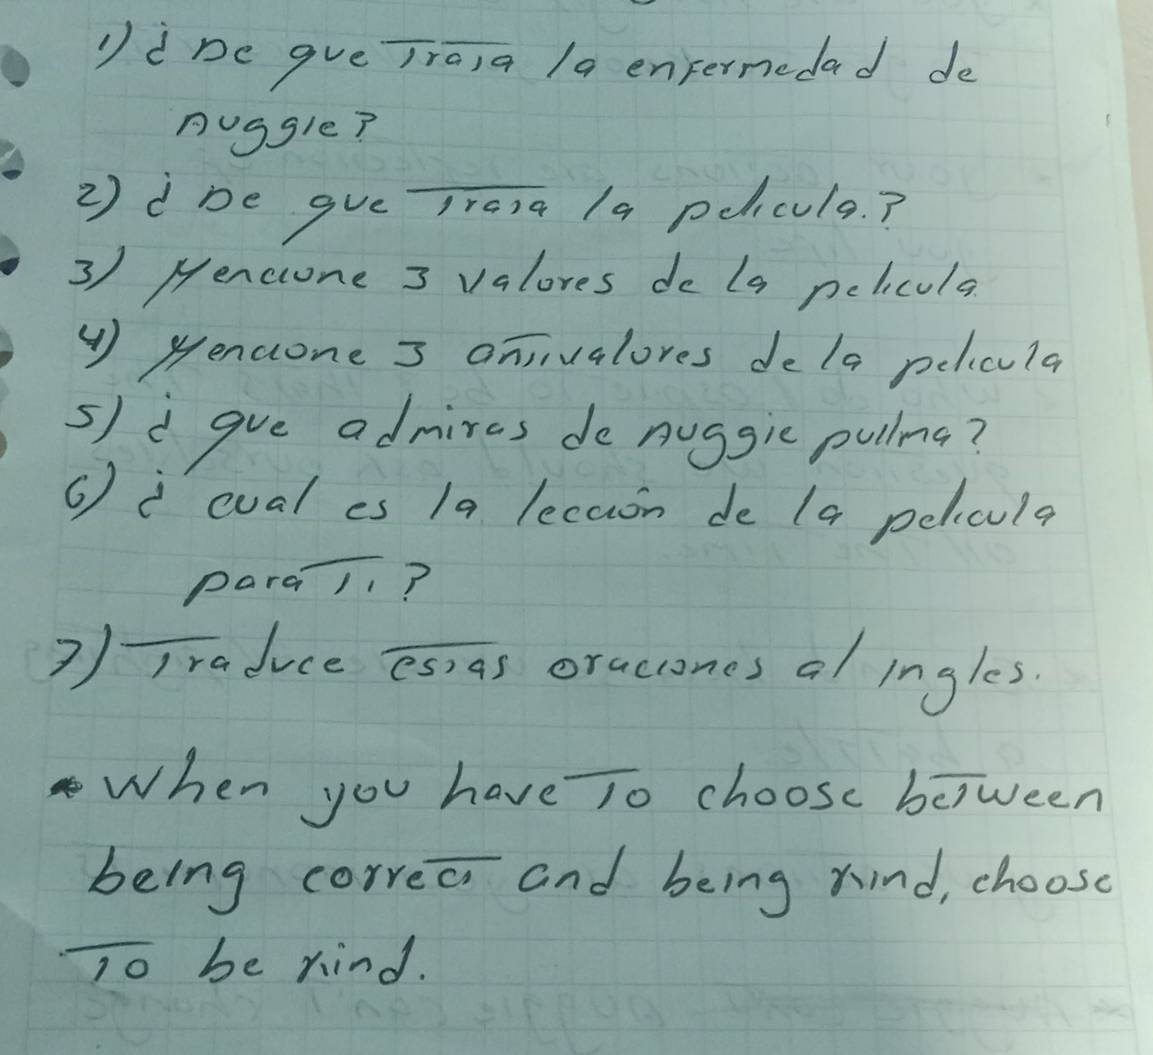 1) ¿ De que Trata la enfermedad de
Auggie?
2) ¿ De que Trata la pelicula.?
3) Mencione 3 valores de la pelicula
4) Mencione 3 anTivalores de la pelicula
5) ¿ que admiras de Auggie pullma?
6) ¿ cual es la lección de la pelicula
para Ti?
7) Traduce estas oraciones al ingles.
• When you have To choose between
being correct and being kind, choose
To be kind.